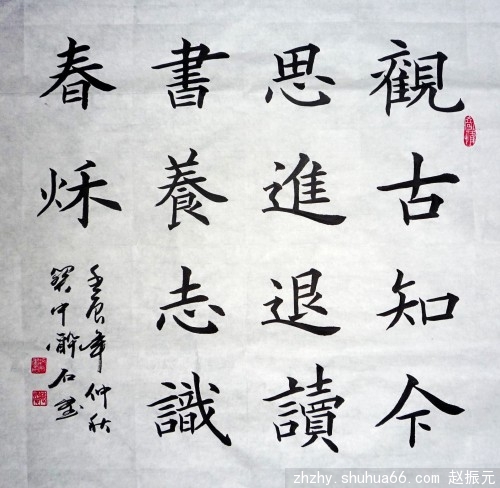 觀古知今
思進退讀
書養志識
春秌
壬辰年仲秋
中醉石書
zhzhy.shuhua66.com 赵振元